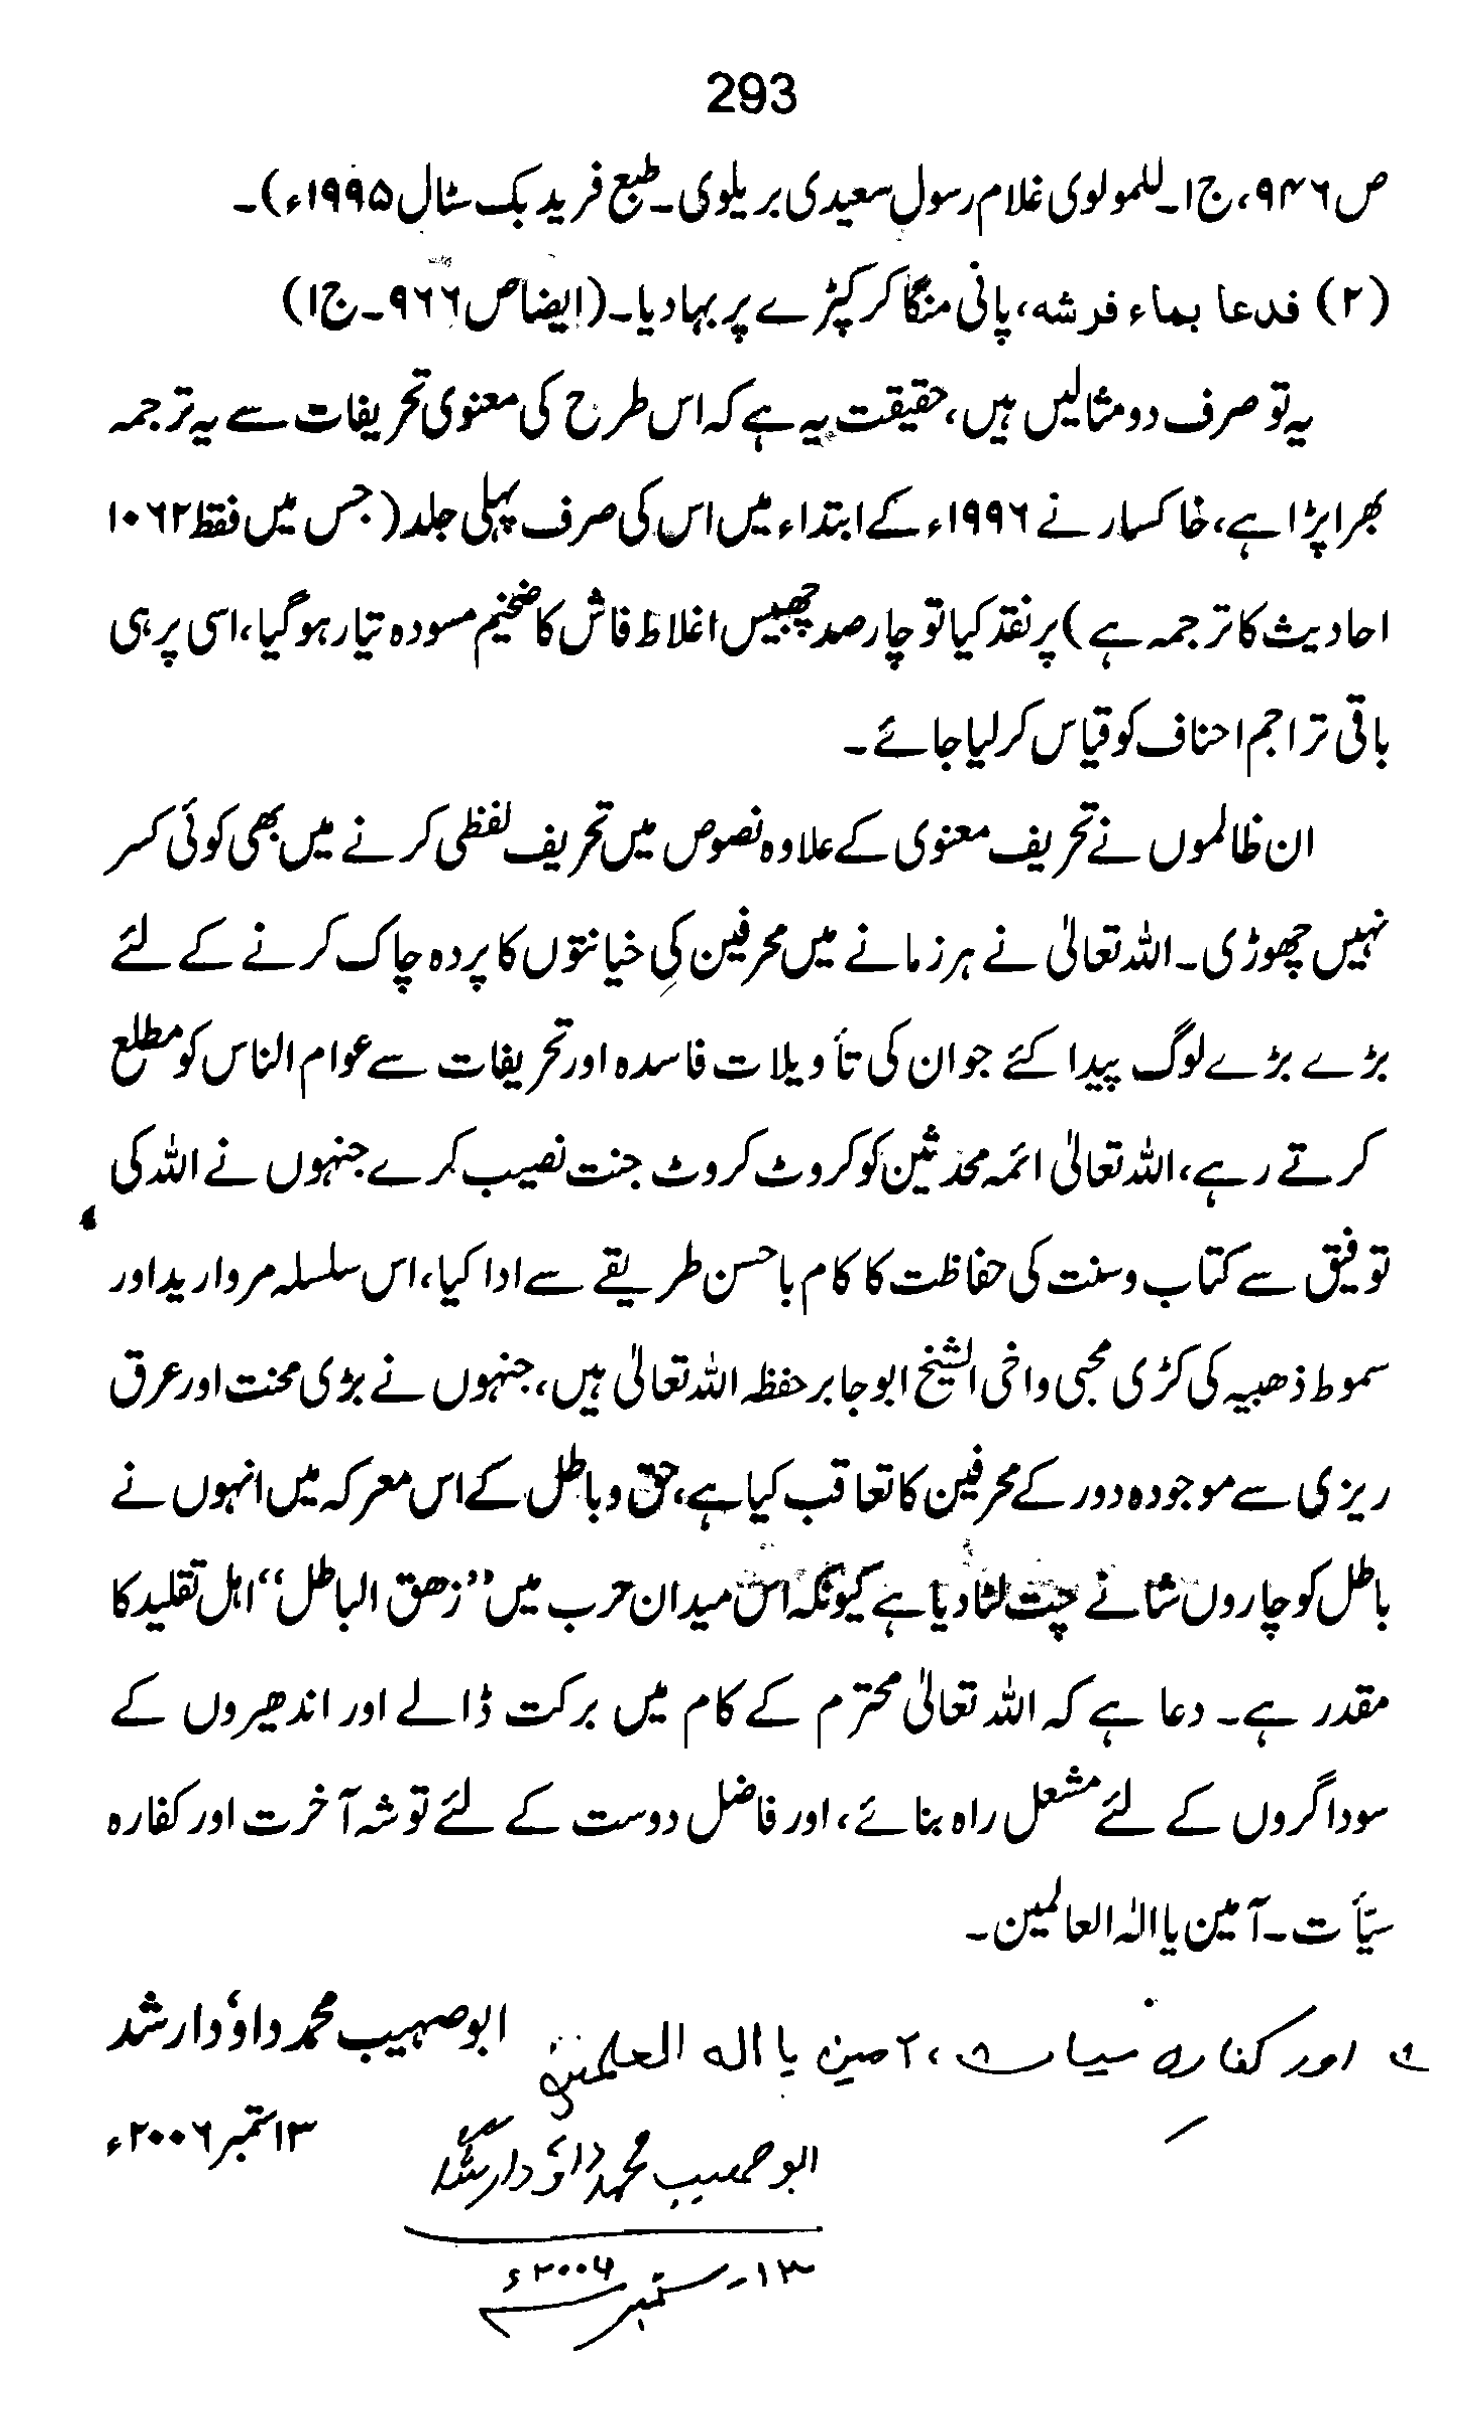 293
ص۹۴۶، ج۱۔ للمولوی غلام رسول سعیدی بریلوی۔ طبع فرید بک سٹال ۱۹۹۵ء)۔
(۲) فدعا بماء فرشه، پانی منگا کر کپڑے پر بہا دیا۔ (ایضاً ص۹۶۶۔ ج۱)
یہ تو صرف دو مثالیں ہیں، حقیقت یہ ہے کہ اس طرح کی معنوی تحریفات سے یہ ترجمہ
بھرا پڑا ہے، خاکسار نے ۱۹۹۶ء کے ابتداء میں اس کی صرف پہلی جلد (جس میں فقط ۱۰۶۲
احادیث کا ترجمہ ہے) پر نقد کیا تو چار صد چھبیس اغلاط فاش کا ضخیم مسودہ تیار ہو گیا، اسی پر ہی
باقی تراجم احناف کو قیاس کر لیا جائے۔
ان ظالموں نے تحریف معنوی کے علاوہ نصوص میں تحریف لفظی کرنے میں بھی کوئی کسر
نہیں چھوڑی۔ اللہ تعالیٰ نے ہر زمانے میں محرفین کی خیانتوں کا پردہ چاک کرنے کے لئے
بڑے بڑے لوگ پیدا کئے جو ان کی تأویلات فاسدہ اور تحریفات سے عوام الناس کو مطلع
کرتے رہے، اللہ تعالیٰ ائمہ محدثین کو کروٹ کروٹ جنت نصیب کرے جنہوں نے اللہ کی
توفیق سے کتاب و سنت کی حفاظت کا کام باحسن طریقے سے ادا کیا، اس سلسلہ مروارید اور
سموط ذھبیہ کی کڑی محبی واخی الشیخ ابو جابر حفظہ اللہ تعالیٰ ہیں، جنہوں نے بڑی محنت اور عرق
ریزی سے موجودہ دور کے محرفین کا تعاقب کیا ہے، حق و باطل کے اس معرکہ میں انہوں نے
باطل کو چاروں شانے چت لٹا دیا ہے کیونکہ اس میدان حرب میں ’’زھق الباطل‘‘ اہل تقلید کا
مقدر ہے۔ دعا ہے کہ اللہ تعالیٰ محترم کے کام میں برکت ڈالے اور اندھیروں کے
سوداگروں کے لئے مشعل راہ بنائے، اور فاضل دوست کے لئے توشہ آخرت اور کفارہ
سیّأت۔ آمین یا الٰہ العالمین۔
ابو صہیب محمد داؤد ارشد
اور کفارہ سیات، آمین یا اله العلمین
۱۳ ستمبر ۲۰۰۶ء
ابو صہیب محمد داؤد ارشد
۱۳۔ ستمبر ۲۰۰۶ء